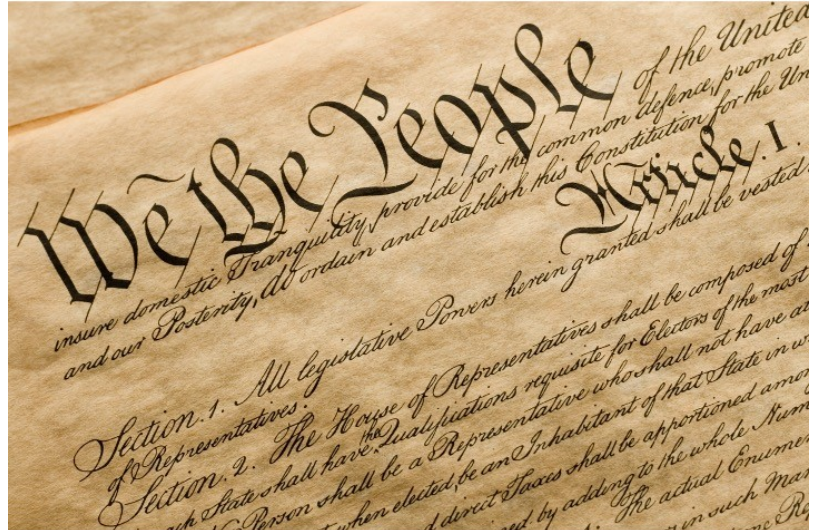 We the People of the United
insure domestic Tranquility, provide for the common defence, promote
and our Posterity, do ordain and establish this Constitution for the Un
Article. I.
Section. 1. All legislative Powers herein granted shall be vested
of Representatives.
Section. 2. The House of Representatives shall be composed of
ach State shall have the Qualifications requisite for Electors of the most
Person shall be a Representative who shall not have at
when elected, be an Inhabitant of that State in w
d direct Taxes shall be apportioned amon
ed by adding to the whole Num
The actual Enumer
in such Man